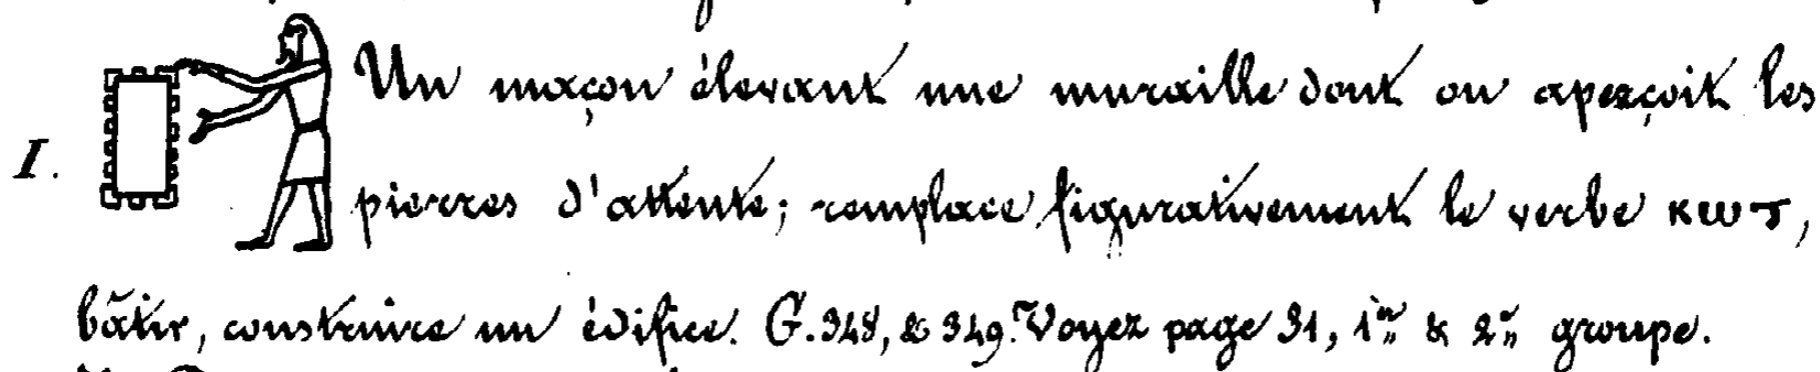 Un maçon élevant une muraille dont on aperçoit les
I. pierres d'attente; remplace figurativement le verbe ⲕⲱⲧ,
bâtir, construire un édifice. G. 348, & 349. Voyez page 31, 1er & 2e groupe.